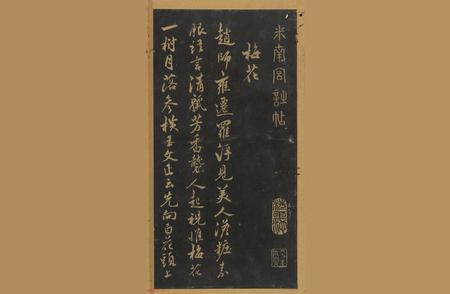 米南宮詩帖
梅花
趙師雄遷羅浮見美人淡粧素
服語言清麗芳香襲人起視惟梅花
一樹月落參橫王文正云先向百花頭上